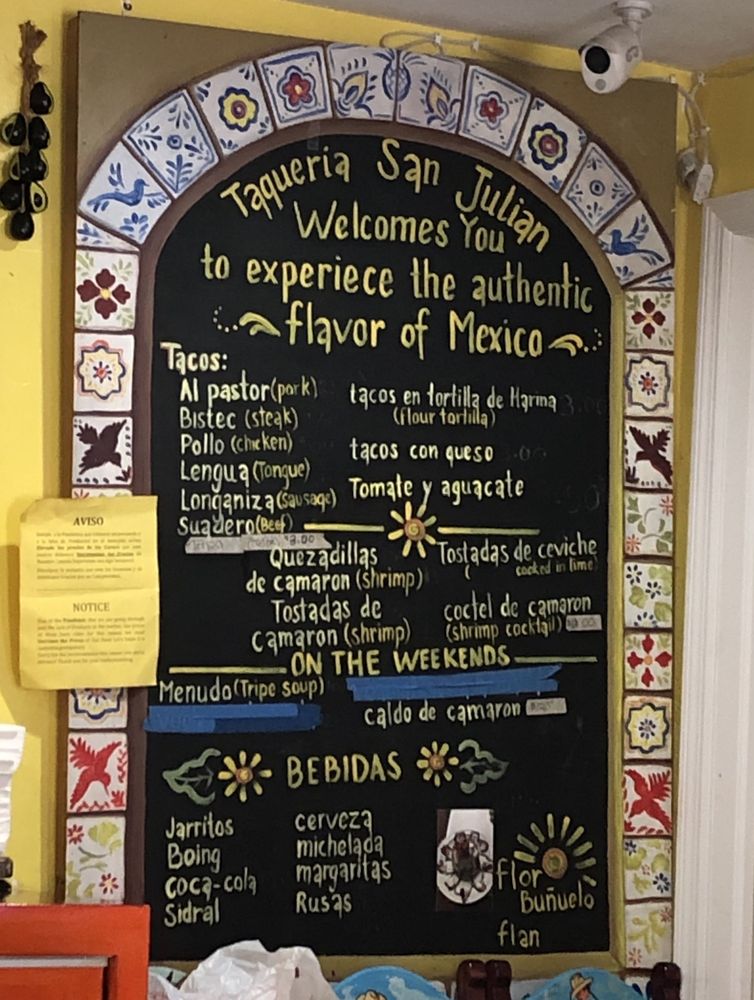 Taqueria San Julian
Welcomes You
to experiece the authentic
flavor of Mexico
Tacos:
Al pastor (pork)
Bistec (steak)
Pollo (chicken)
Lengua (Tongue)
Longaniza (Sausage)
Suadero (Beef)
tacos en tortilla de Harina
(flour tortilla)
tacos con queso
Tomate y aguacate
Quezadillas
de camaron (shrimp)
Tostadas de
camaron (shrimp)
Tostadas de ceviche
( cocked in lime)
coctel de camaron
(shrimp cocktail)
ON THE WEEKENDS
Menudo (Tripe soup)
caldo de camaron
BEBIDAS
Jarritos
Boing
coca-cola
Sidral
cerveza
michelada
margaritas
Rusas
flor
Buñuelo
flan
AVISO
NOTICE